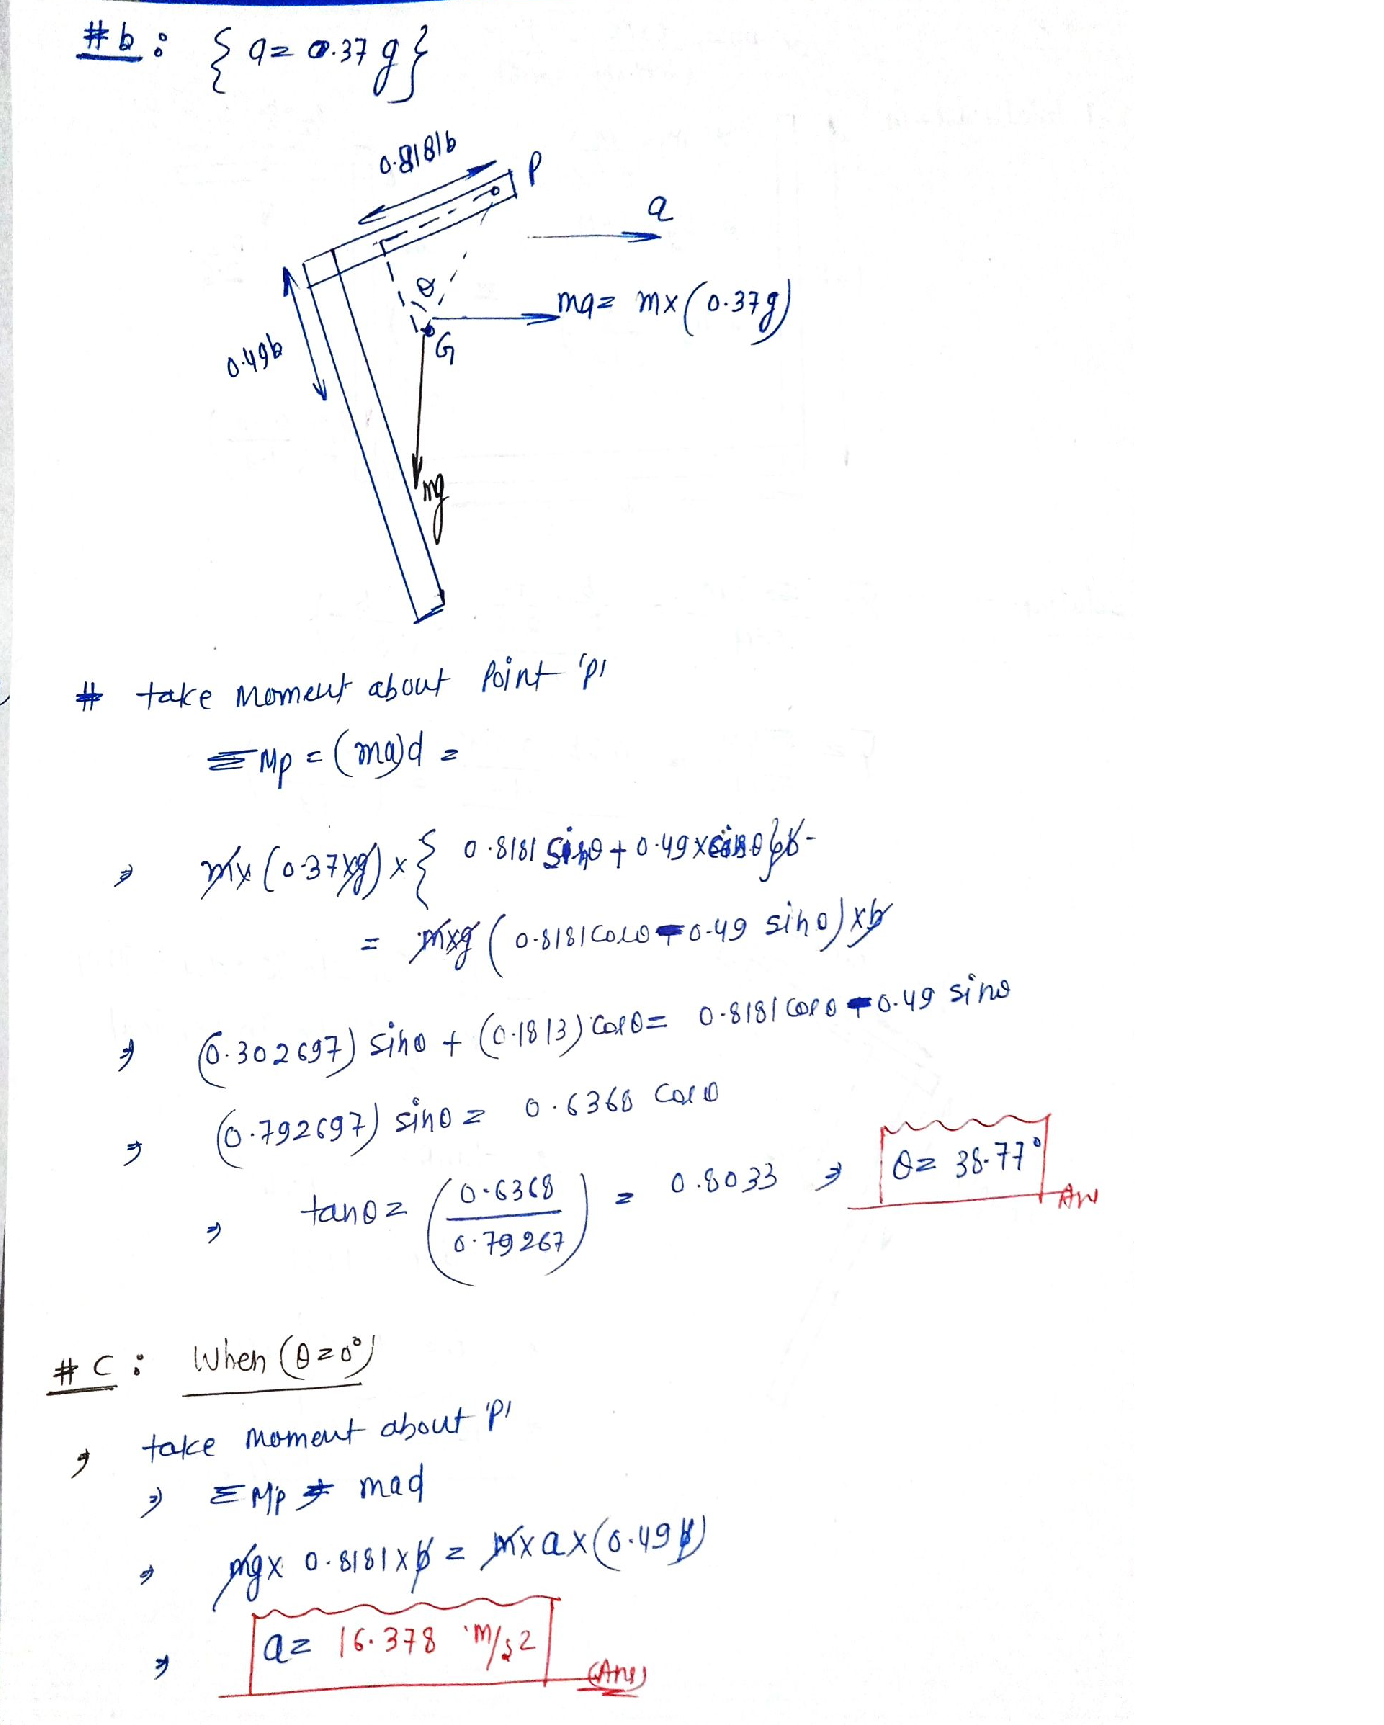 #b: {a = 0.37g}
0.8181b
P
a
θ
ma = m×(0.37g)
G
0.49b
mg
# take Moment about Point 'P'
ΣMp = (ma)d =
⇒ m×(0.37×g)×{0.8181 sinθ + 0.49×cosθ}b
= m×g(0.8181cosθ - 0.49 sinθ)×b
⇒ (0.302697) sinθ + (0.1813) cosθ = 0.8181 cosθ - 0.49 sinθ
⇒ (0.792697) sinθ = 0.6368 cosθ
⇒ tanθ = (0.6368/0.79267) = 0.8033 ⇒ θ = 38.77° Ans
#C: When (θ = 0°)
⇒ take Moment about 'P'
⇒ ΣMp = mad
⇒ mg× 0.8181×b = m×a×(0.49b)
⇒ a = 16.378 m/s2 (Ans)